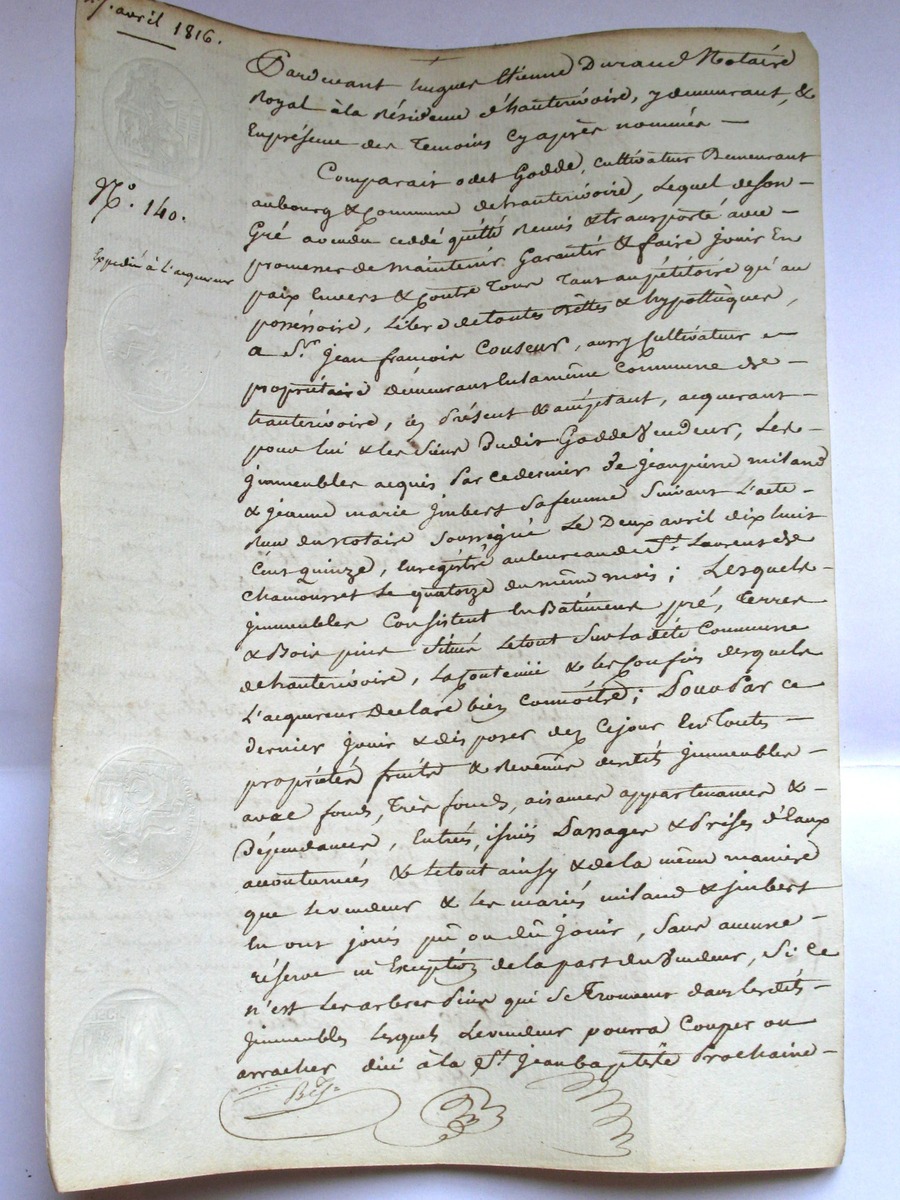 7. avril 1816.
Pardevant hugues Etienne Durand Notaire
Royal à la Résidence d'hauterivoire, y demeurant, &
En présence des Temoins cy après nommés —
N.º 140.
Expédié à l'acquereur
Comparait odet Godde, cultivateur Demeurant
au bourg & Commune de hauterivoire, Lequel de son -
Gré a vendu cedde quitté remis & transporté avec -
promesse de maintenir Garantir & faire jouir En
paix Envers & Contre Tous Tant au pétitoire qu'au
possessoire, Libre de toutes dettes & hypothèques,
a S.r jean françois Couseur, aussy Cultivateur &
propriétaire Demeurant En la même Commune de -
hauterivoire, icy présent & acceptant, acquerant -
pour lui & les siens Dudit Godde Vendeur, Les -
jmmeubles acquis par ce dernier de jean pierre miland
& jeanne marie jmbert sa femme Suivant L'acte -
Reçu du Notaire Soussigné Le Deux avril dix huit
Cent quinze, Enrégistré au bureau de St. Laurent de
Chamousset Le quatorze du même mois; Lesquels -
jmmeubles Consistent En Bâtiments pré, terres
& Bois pins Situé Le tout Sur La dite Commune
de hauterivoire, La Contenue & les Confins desquels
L'acquereur Declare bien Connoitre; Pour Par ce
dernier jouir & disposer dez Cejour En Toutes —
propriétés fruits & Revenus desdits jmmeubles -
avec fonds, Très fonds, aisances appartenances & -
Dépendances, Entrées, issues Passages & Prises d'Eaux
accoutumés & Le tout ainsy & de la même manière
que Le vendeur & Les mariés miland & jmbert
En ont jouis pû ou dû jouir, Sans aucune -
réserve ni Exception de la part du Vendeur, Si ce
n'est Les arbres Pins qui Se Trouvent dans Lesdits -
jmmeubles Lesquels Le vendeur pourra Couper ou
arracher dici à la St. jean baptiste Prochaine -